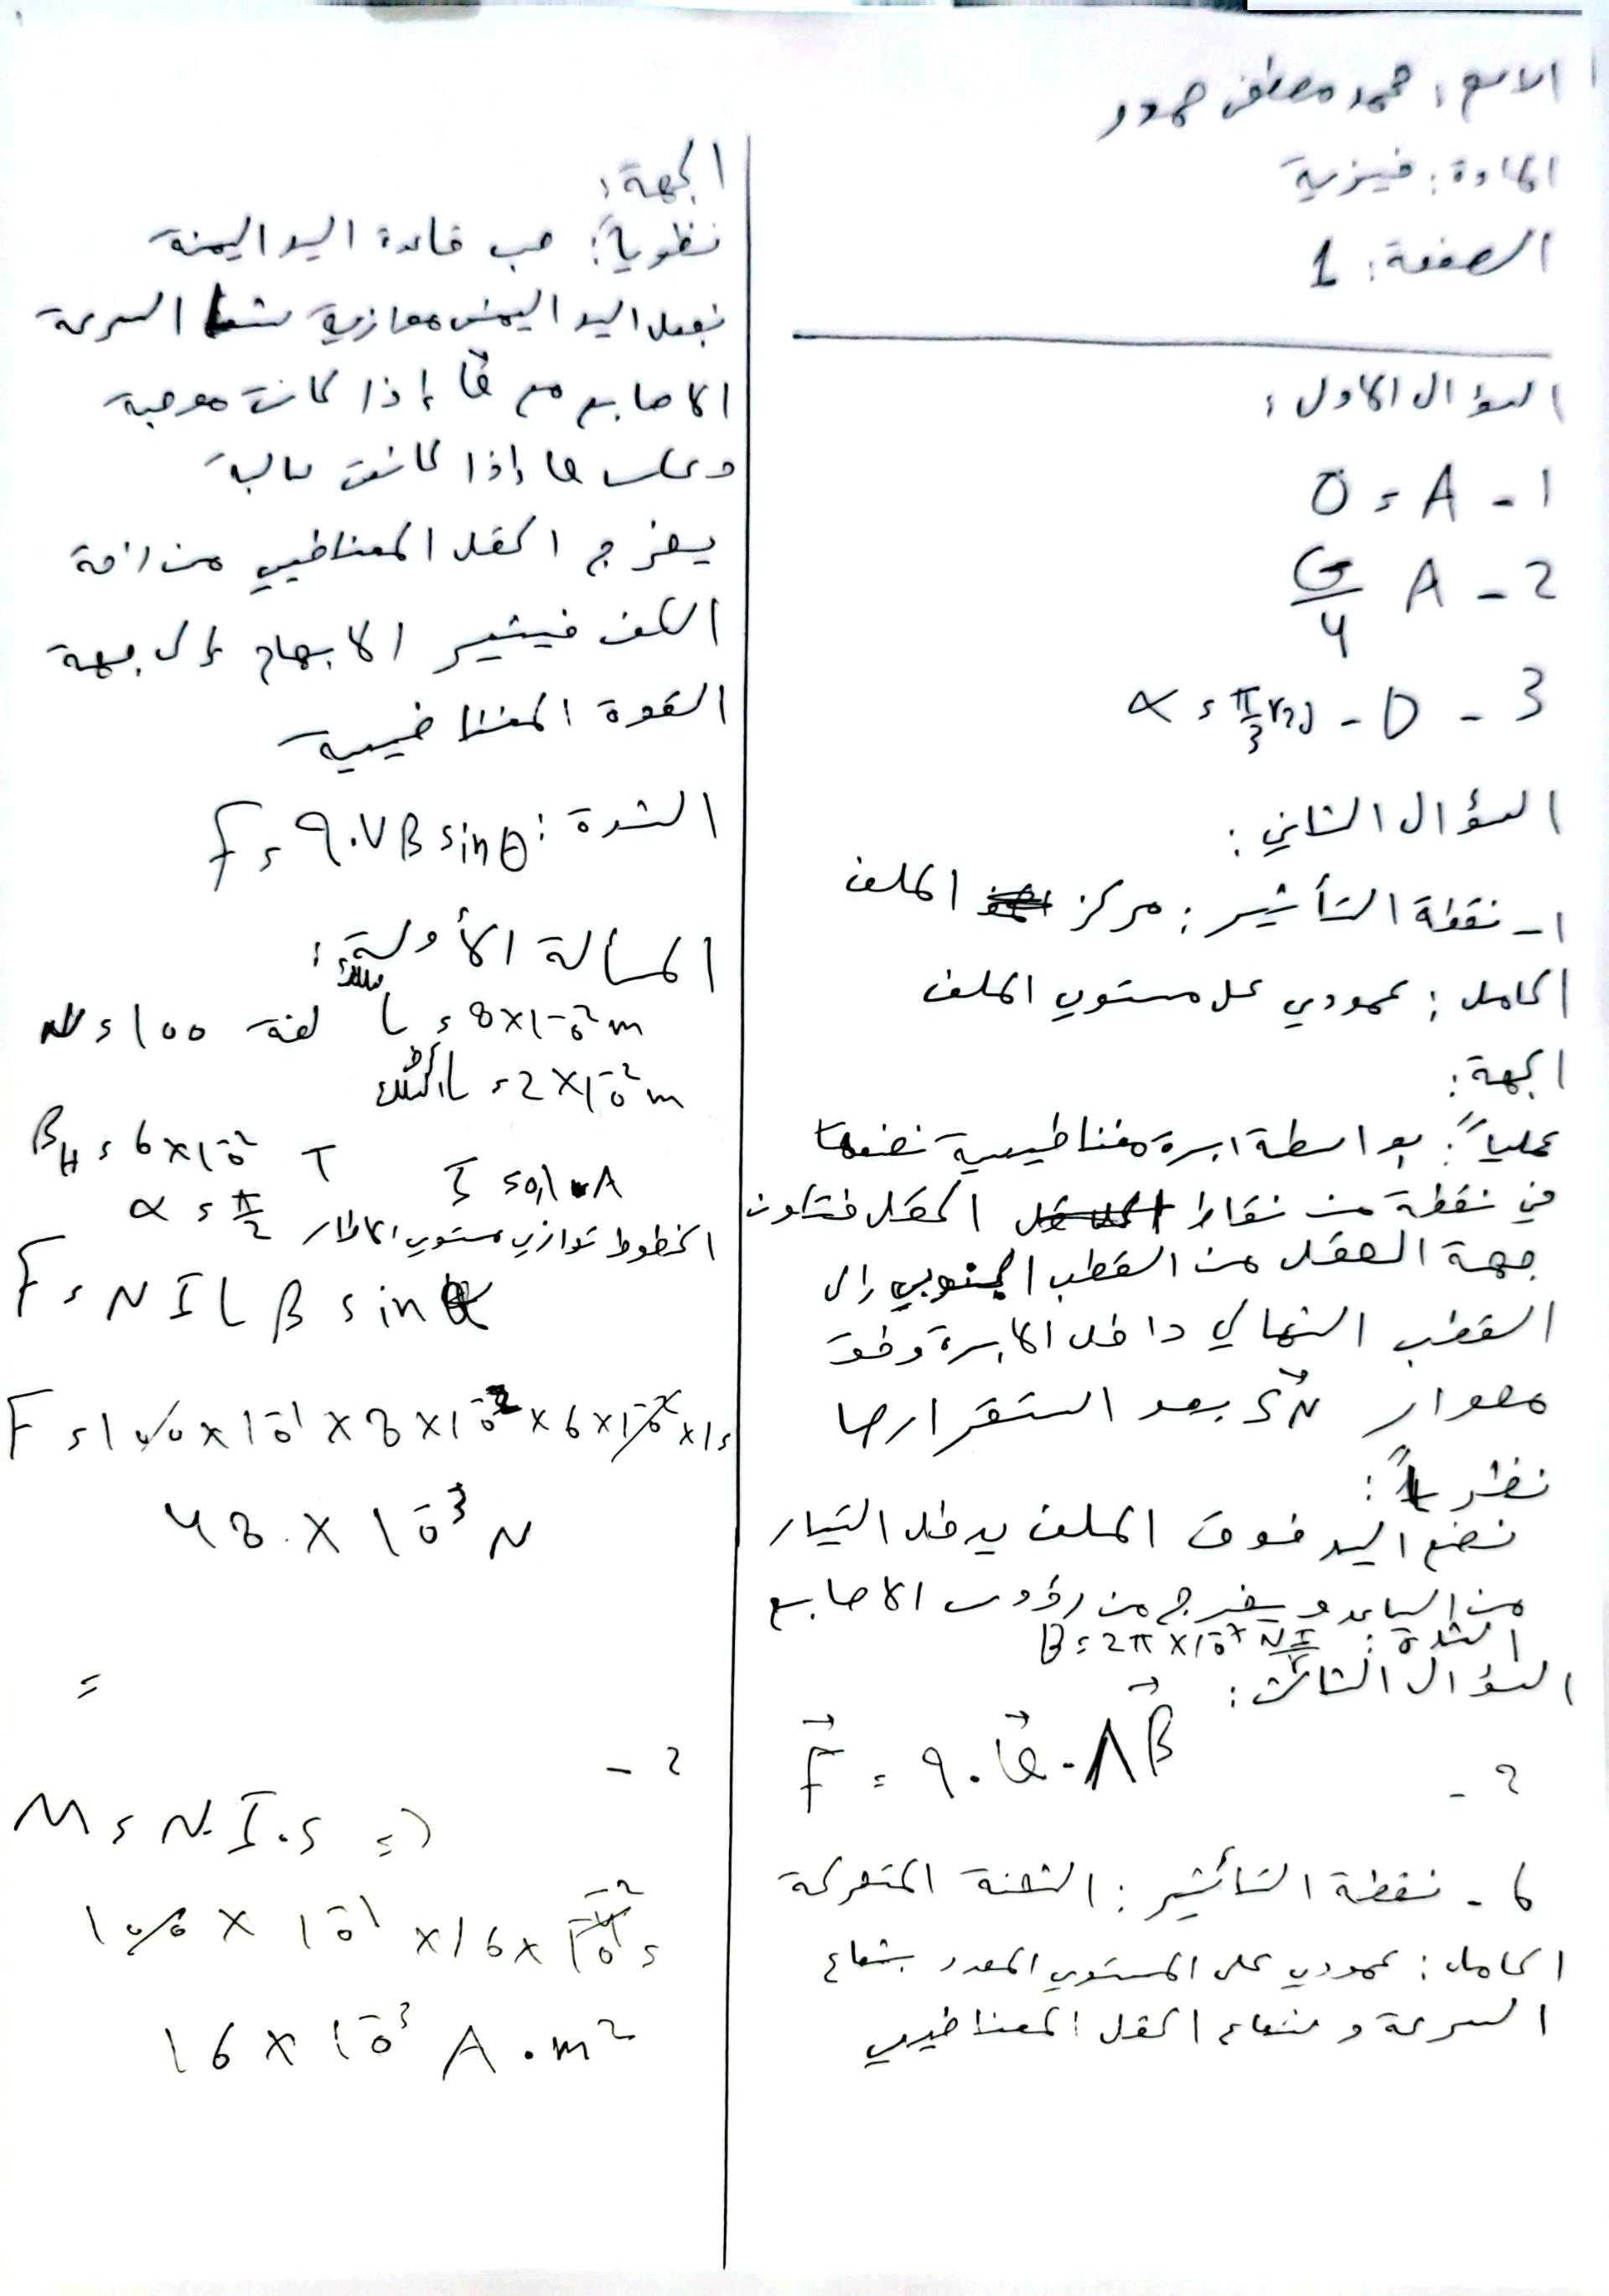 الاسم: محمد مصطفى حمود
المادة: فيزية
الصفحة: 1
السؤال الاول:
1 - A = 0
2 - A G/4
3 - D - α = π/3 rad
السؤال الثاني:
1- نقطة التأثير: مركز الملف
الحامل: عمودي على مستوي الملف
الجهة:
عملياً: بواسطة ابرة مغناطيسية نضعها
في نقطة من نقاط الحقل فتكون
جهة الحقل من القطب الجنوبي إلى
القطب الشمالي داخل الابرة وفق
محوار SN بعد استقرارها
نظرياً:
نضع اليد فوق الملف يدخل التيار
من الساعد و يخرج من رؤوس الاصابع
الشدة: B = 2π × 10⁻⁷ NI/r
السؤال الثالث:
2 - F = q.v.ΛB
b - نقطة التأثير: الشحنة المتحركة
الحامل: عمودي على المستوي المحدد بشعاع
السرعة و شعاع الحقل المغناطيسي
الجهة:
نظرياً: حسب قاعدة اليد اليمنة
نجعل اليد اليمنى موازية السرعة
الاصابع مع v إذا كانت موجبة
وعكسها إذا كانت سالبة
يخرج الحقل المغناطيسي من راحة
الكف فيشير الابهام إلى جهة
القوة المغناطيسية
الشدة: F = q.VB sinθ
المسالة الأولى:
L = 8×10⁻² m لفة 100 =
L = 2×10⁻² m
B_H = 6×10⁻² T
I = 0,1 A
α = π/2 الخطوط توازي مستوي الاطار
F = N I L B sin α
F = 100 × 10⁻¹ × 8 × 10⁻² × 6 × 10⁻² × 1 =
48 × 10⁻³ N
=
2 -
M = N.I.s =>
100 × 10⁻¹ × 16 × 10⁻⁴ =
16 × 10⁻³ A.m²